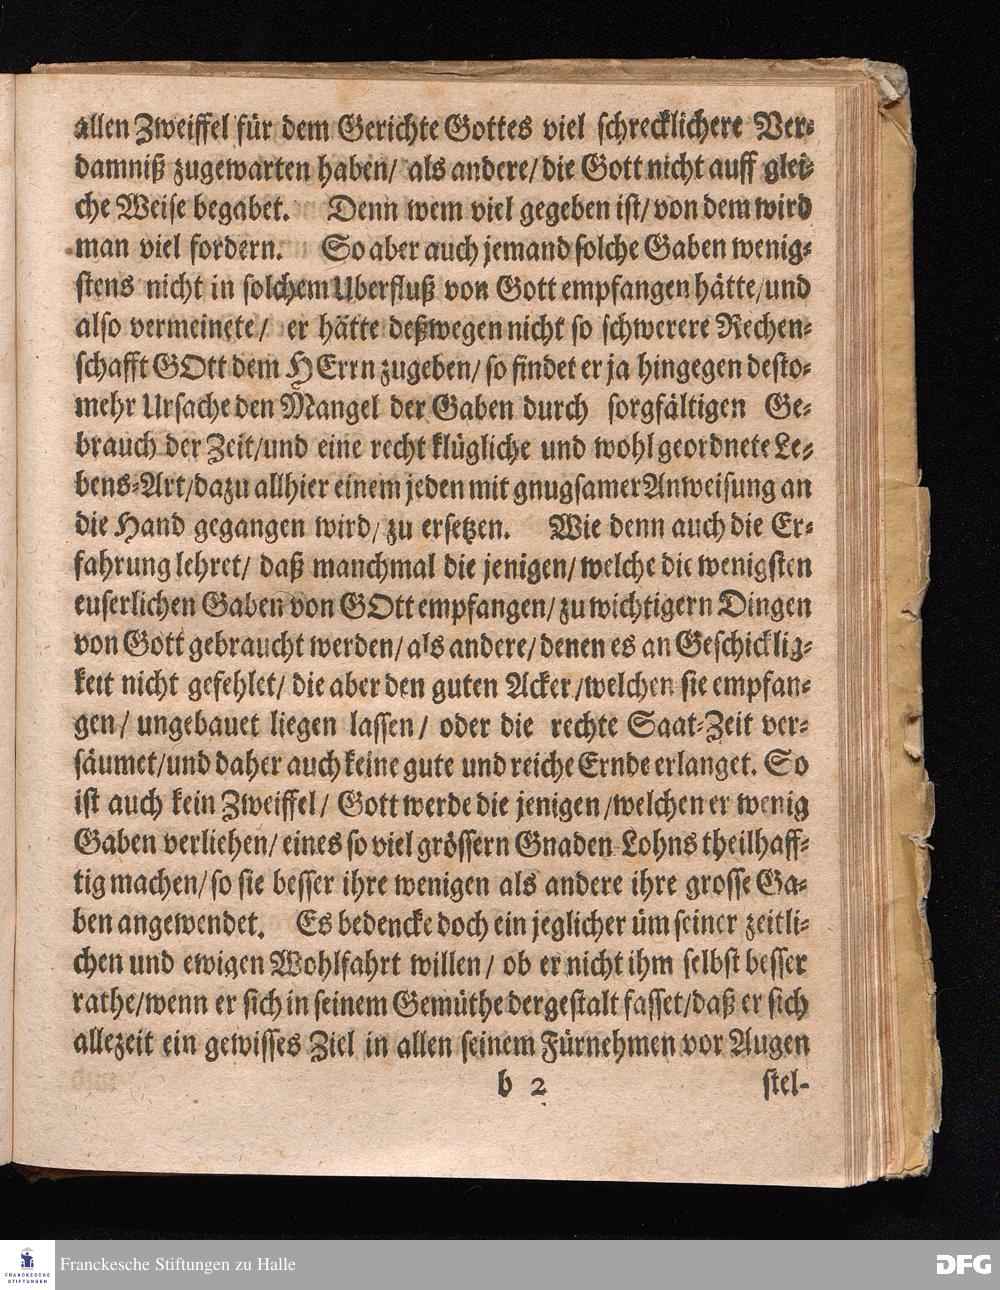 allen Zweiffel für dem Gerichte Gottes viel schrecklichere Ver-
damniß zugewarten haben/ als andere/ die Gott nicht auff glei-
che Weise begabet. Denn wem viel gegeben ist/ von dem wird
man viel fordern. So aber auch jemand solche Gaben wenig-
stens nicht in solchem Uberfluß von Gott empfangen hätte/und
also vermeinete/ er hätte deßwegen nicht so schwerere Rechen-
schafft GOtt dem HErrn zugeben/ so findet er ja hingegen desto-
mehr Ursache den Mangel der Gaben durch sorgfältigen Ge-
brauch der Zeit/und eine recht klügliche und wohl geordnete Le-
bens-Art/dazu allhier einem jeden mit gnugsamer Anweisung an
die Hand gegangen wird/ zu ersetzen. Wie denn auch die Er-
fahrung lehret/ daß manchmal die jenigen/ welche die wenigsten
euserlichen Gaben von GOtt empfangen/ zu wichtigern Dingen
von Gott gebraucht werden/ als andere/ denen es an Geschicklig-
keit nicht gefehlet/ die aber den guten Acker/welchen sie empfan-
gen/ ungebauet liegen lassen/ oder die rechte Saat-Zeit ver-
säumet/und daher auch keine gute und reiche Ernde erlanget. So
ist auch kein Zweiffel/ Gott werde die jenigen/welchen er wenig
Gaben verliehen/ eines so viel grössern Gnaden Lohns theilhaff-
tig machen/ so sie besser ihre wenigen als andere ihre grosse Ga-
ben angewendet. Es bedencke doch ein jeglicher üm seiner zeitli-
chen und ewigen Wohlfahrt willen/ ob er nicht ihm selbst besser
rathe/wenn er sich in seinem Gemüthe dergestalt fasset/daß er sich
allezeit ein gewisses Ziel in allen seinem Fürnehmen vor Augen
b 2 stel-
FRANCKESCHE STIFTUNGEN
Franckesche Stiftungen zu Halle
DFG